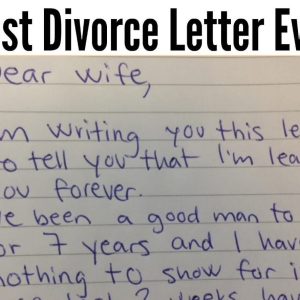 st Divorce Letter Ev
ear wife,
m writing you this le
to tell you that I'm lea
ou forever.
ve been a good man to
or 7 years and I hav
nothing to show for i